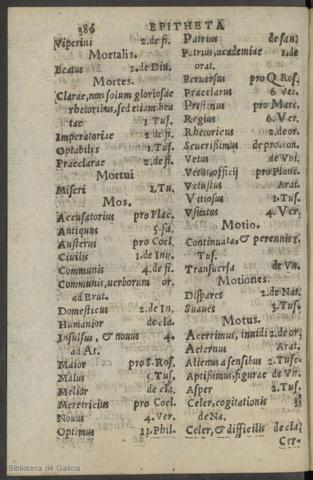 386 EPITHETA
Viperini 2.de fi.
Mortalis.
Beatus 2.de Diu.
Mortes.
Clarae, non solum gloriosae
rhetoribus, sed etiam bea
tae 1. Tus.
Imperatoriae 2.de fi.
Optabilis 1.Tus.
Praeclarae 2.de fi.
Mortui
Miseri 1.Tu.
Mos.
Accusatorius pro Plac.
Antiquus
Austerus pro Coel.
Ciuilis 1.de Inu.
Communis 4.de fi.
Communis, uerborum or.
ad Brut.
Domesticus 2.de In.
Humanior de cla.
Insulsus, & nouus 4.
ad At.
Maior pro S. Ros.
Malus 5.Tus.
Melior de cla.
Meretricius pro Coel.
Nouus 4. Ver.
Optimus 11.Phil.
Patrius de san
Patrius, academiae 1.de
orat.
Peruersus pro Q. Ros.
Praeclarus 6 Ver.
Pristinus pro Marc.
Regius 6. Ver.
Rhetoricus 2.de or.
Seuerissimus de pro.con.
Vetus de Vni.
Vetus, officij pro Planc.
Vetustus Arat.
Vitiosus 1.Tus.
Vsitatus 4. Ver.
Motio.
Continuata, & perennis 1.
Tus.
Transuersa de Vn.
Motiones.
Dispares 2.de Nat.
Suaues 3.Tus.
Motus.
Acerrimus, inuidi 2.de or
Aeternus Arat.
Alienus a sensibus 2.Tusc.
Aptissimus, figurae de Vn.
Asper 2.Tus.
Celer, cogitationis
de Na.
Celer, & difficilis de cla
Cer-
Biblioteca de Galicia